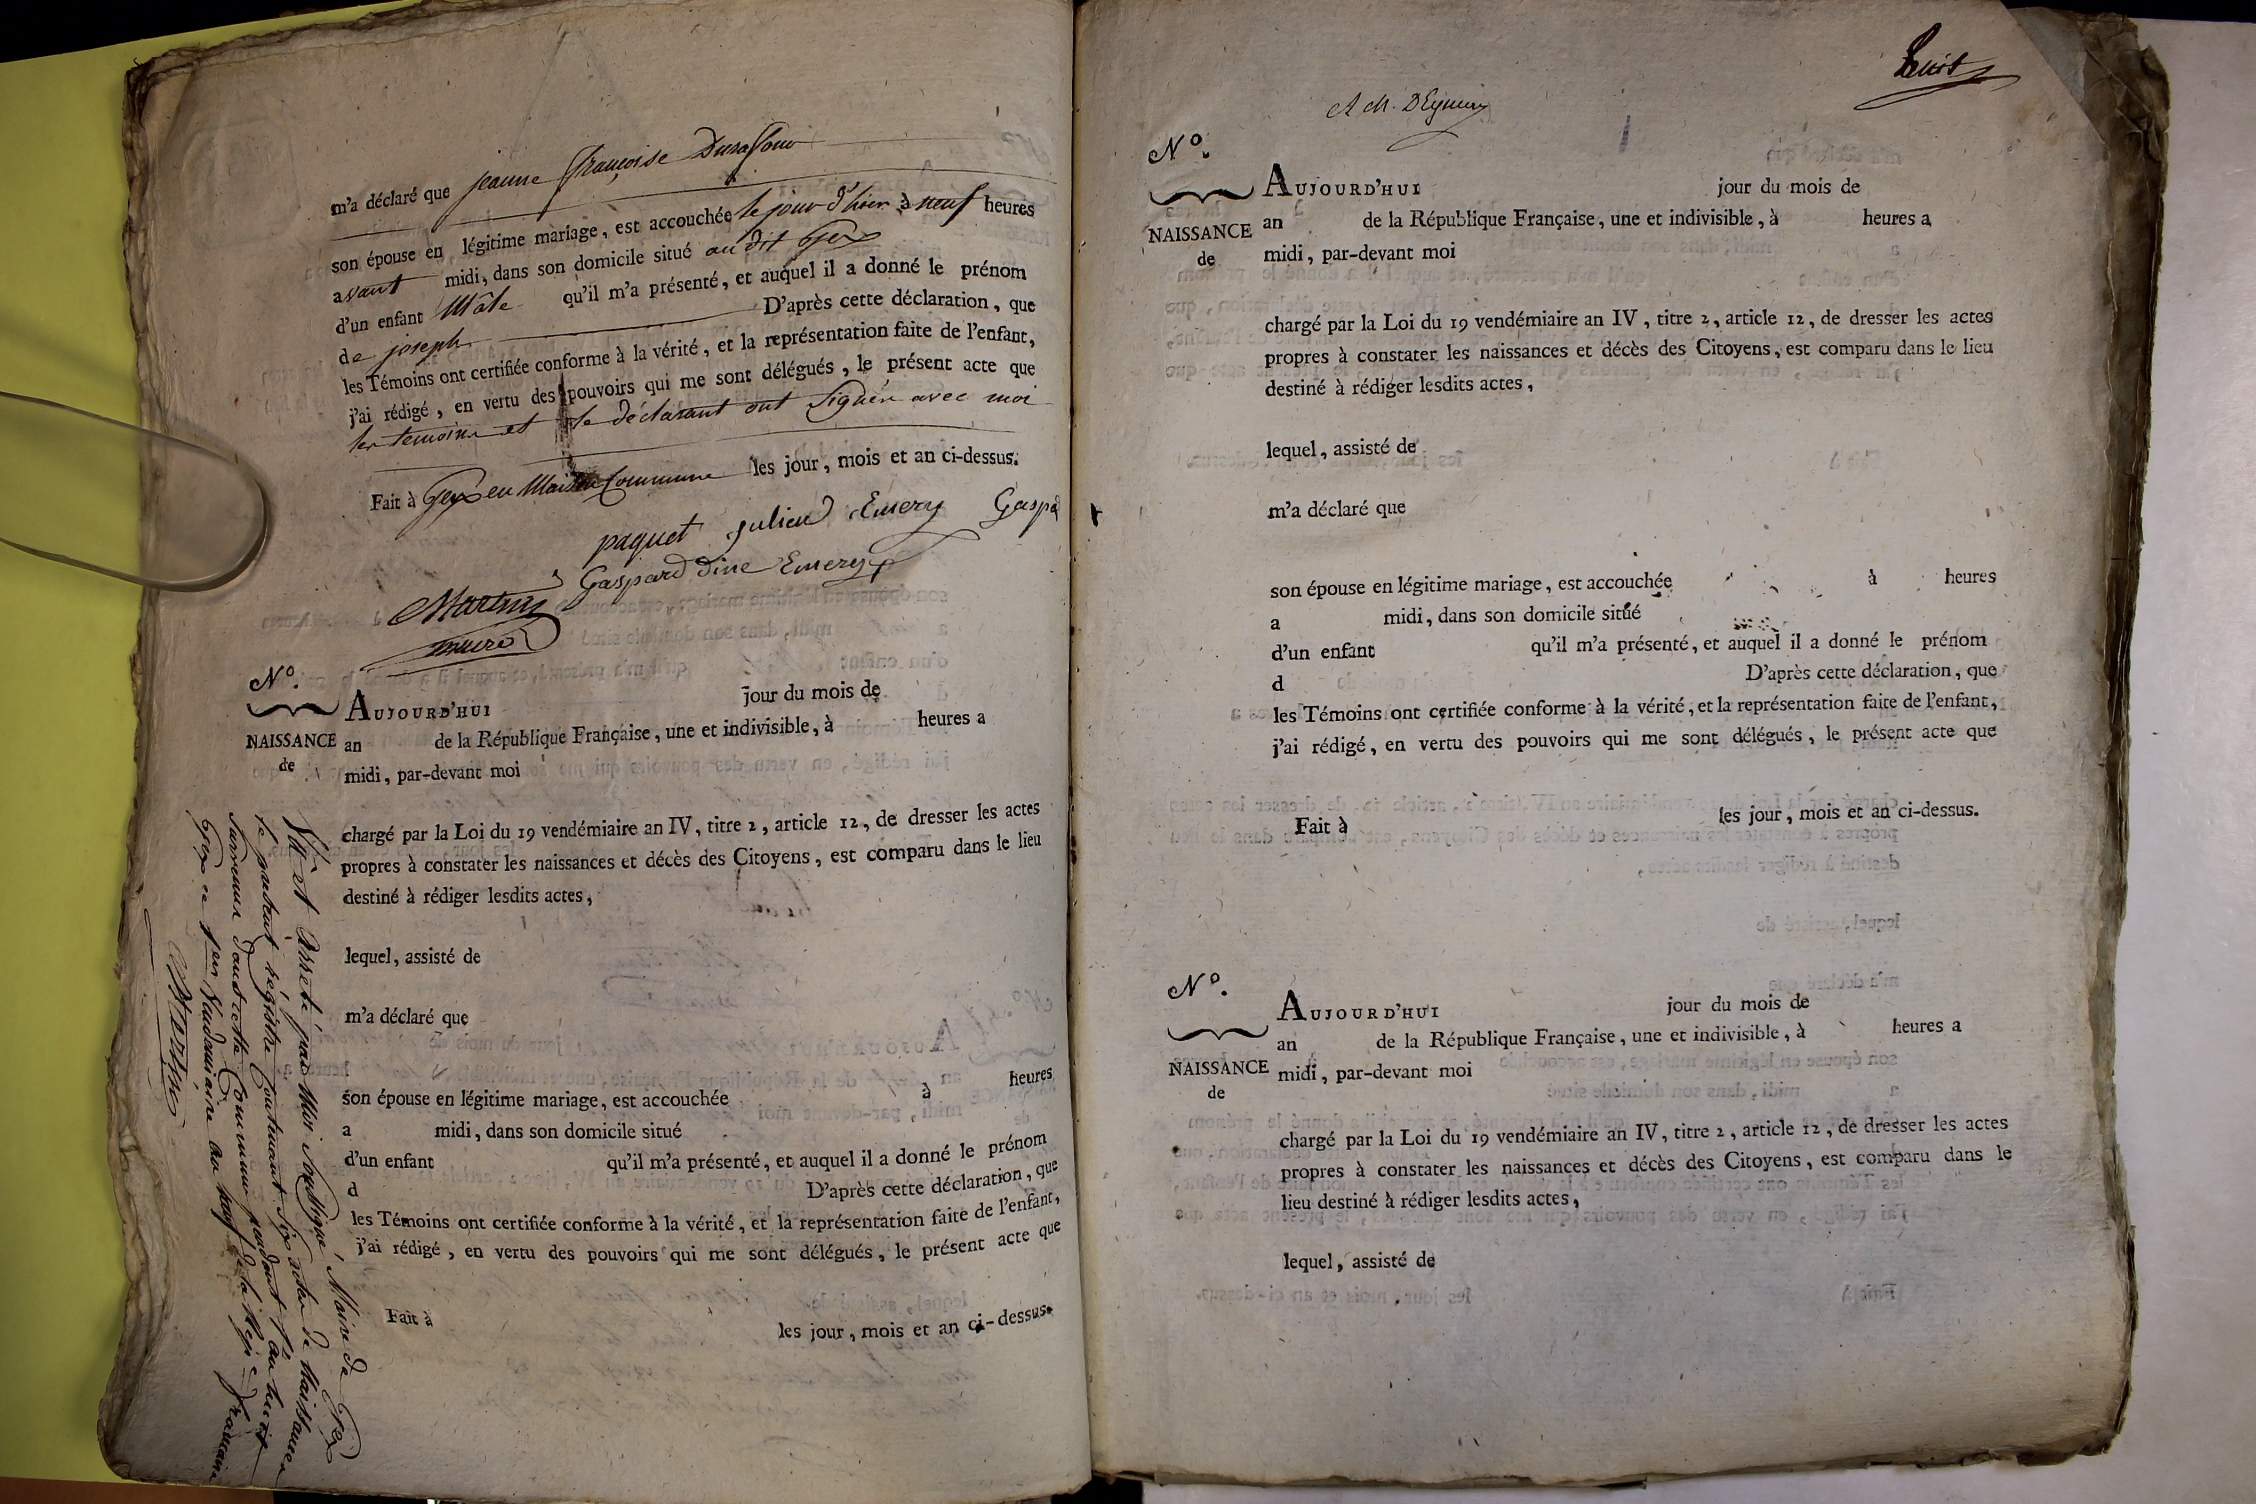 m'a déclaré que jeanne françoise Durafour
son épouse en légitime mariage, est accouchée le jour d'hier à neuf heures
avant midi, dans son domicile situé au dit Gex
d'un enfant Mâle qu'il m'a présenté, et auquel il a donné le prénom
de joseph D'après cette déclaration, que
les Témoins ont certifiée conforme à la vérité, et la représentation faite de l'enfant,
j'ai rédigé, en vertu des pouvoirs qui me sont délégués, le présent acte que
les temoins et le déclarant ont signés avec moi
Fait à Gex en Maison Commune les jour, mois et an ci-dessus.
paquet julien Emery Gaspa
Gaspard Emery
maire
Nº.
AUJOURD'HUI jour du mois de
NAISSANCE an de la République Française, une et indivisible, à heures a
de midi, par-devant moi
chargé par la Loi du 19 vendémiaire an IV, titre 2, article 12, de dresser les actes
propres à constater les naissances et décès des Citoyens, est comparu dans le lieu
destiné à rédiger lesdits actes,
lequel, assisté de
m'a déclaré que
son épouse en légitime mariage, est accouchée à heures
a midi, dans son domicile situé
d'un enfant qu'il m'a présenté, et auquel il a donné le prénom
d D'après cette déclaration, que
les Témoins ont certifiée conforme à la vérité, et la représentation faite de l'enfant,
j'ai rédigé, en vertu des pouvoirs qui me sont délégués, le présent acte que
Fait à les jour, mois et an ci-dessus.
Vû et arreté par Moi soussigné Maire de Gex
le présent régistre Contenant six actes de Naissances
Survenus dans cette Commune pendant l'an huit
Gex ce 1er Vendemiaire an neuf de la Rep. française
huit
Nº.
AUJOURD'HUI jour du mois de
an de la République Française, une et indivisible, à heures a
NAISSANCE
de midi, par-devant moi
chargé par la Loi du 19 vendémiaire an IV, titre 2, article 12, de dresser les actes
propres à constater les naissances et décès des Citoyens, est comparu dans le lieu
destiné à rédiger lesdits actes,
lequel, assisté de
m'a déclaré que
son épouse en légitime mariage, est accouchée à heures
a midi, dans son domicile situé
d'un enfant qu'il m'a présenté, et auquel il a donné le prénom
d D'après cette déclaration, que
les Témoins ont certifiée conforme à la vérité, et la représentation faite de l'enfant,
j'ai rédigé, en vertu des pouvoirs qui me sont délégués, le présent acte que
Fait à les jour, mois et an ci-dessus.
Nº.
AUJOURD'HUI jour du mois de
an de la République Française, une et indivisible, à heures a
NAISSANCE midi, par-devant moi
de
chargé par la Loi du 19 vendémiaire an IV, titre 2, article 12, de dresser les actes
propres à constater les naissances et décès des Citoyens, est comparu dans le
lieu destiné à rédiger lesdits actes,
lequel, assisté de